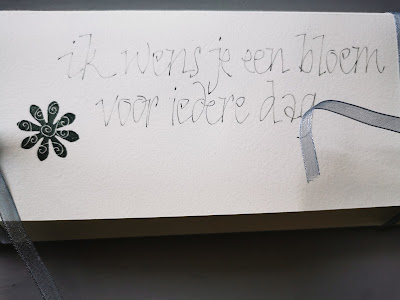 ik wens je een bloem
voor iedere dag